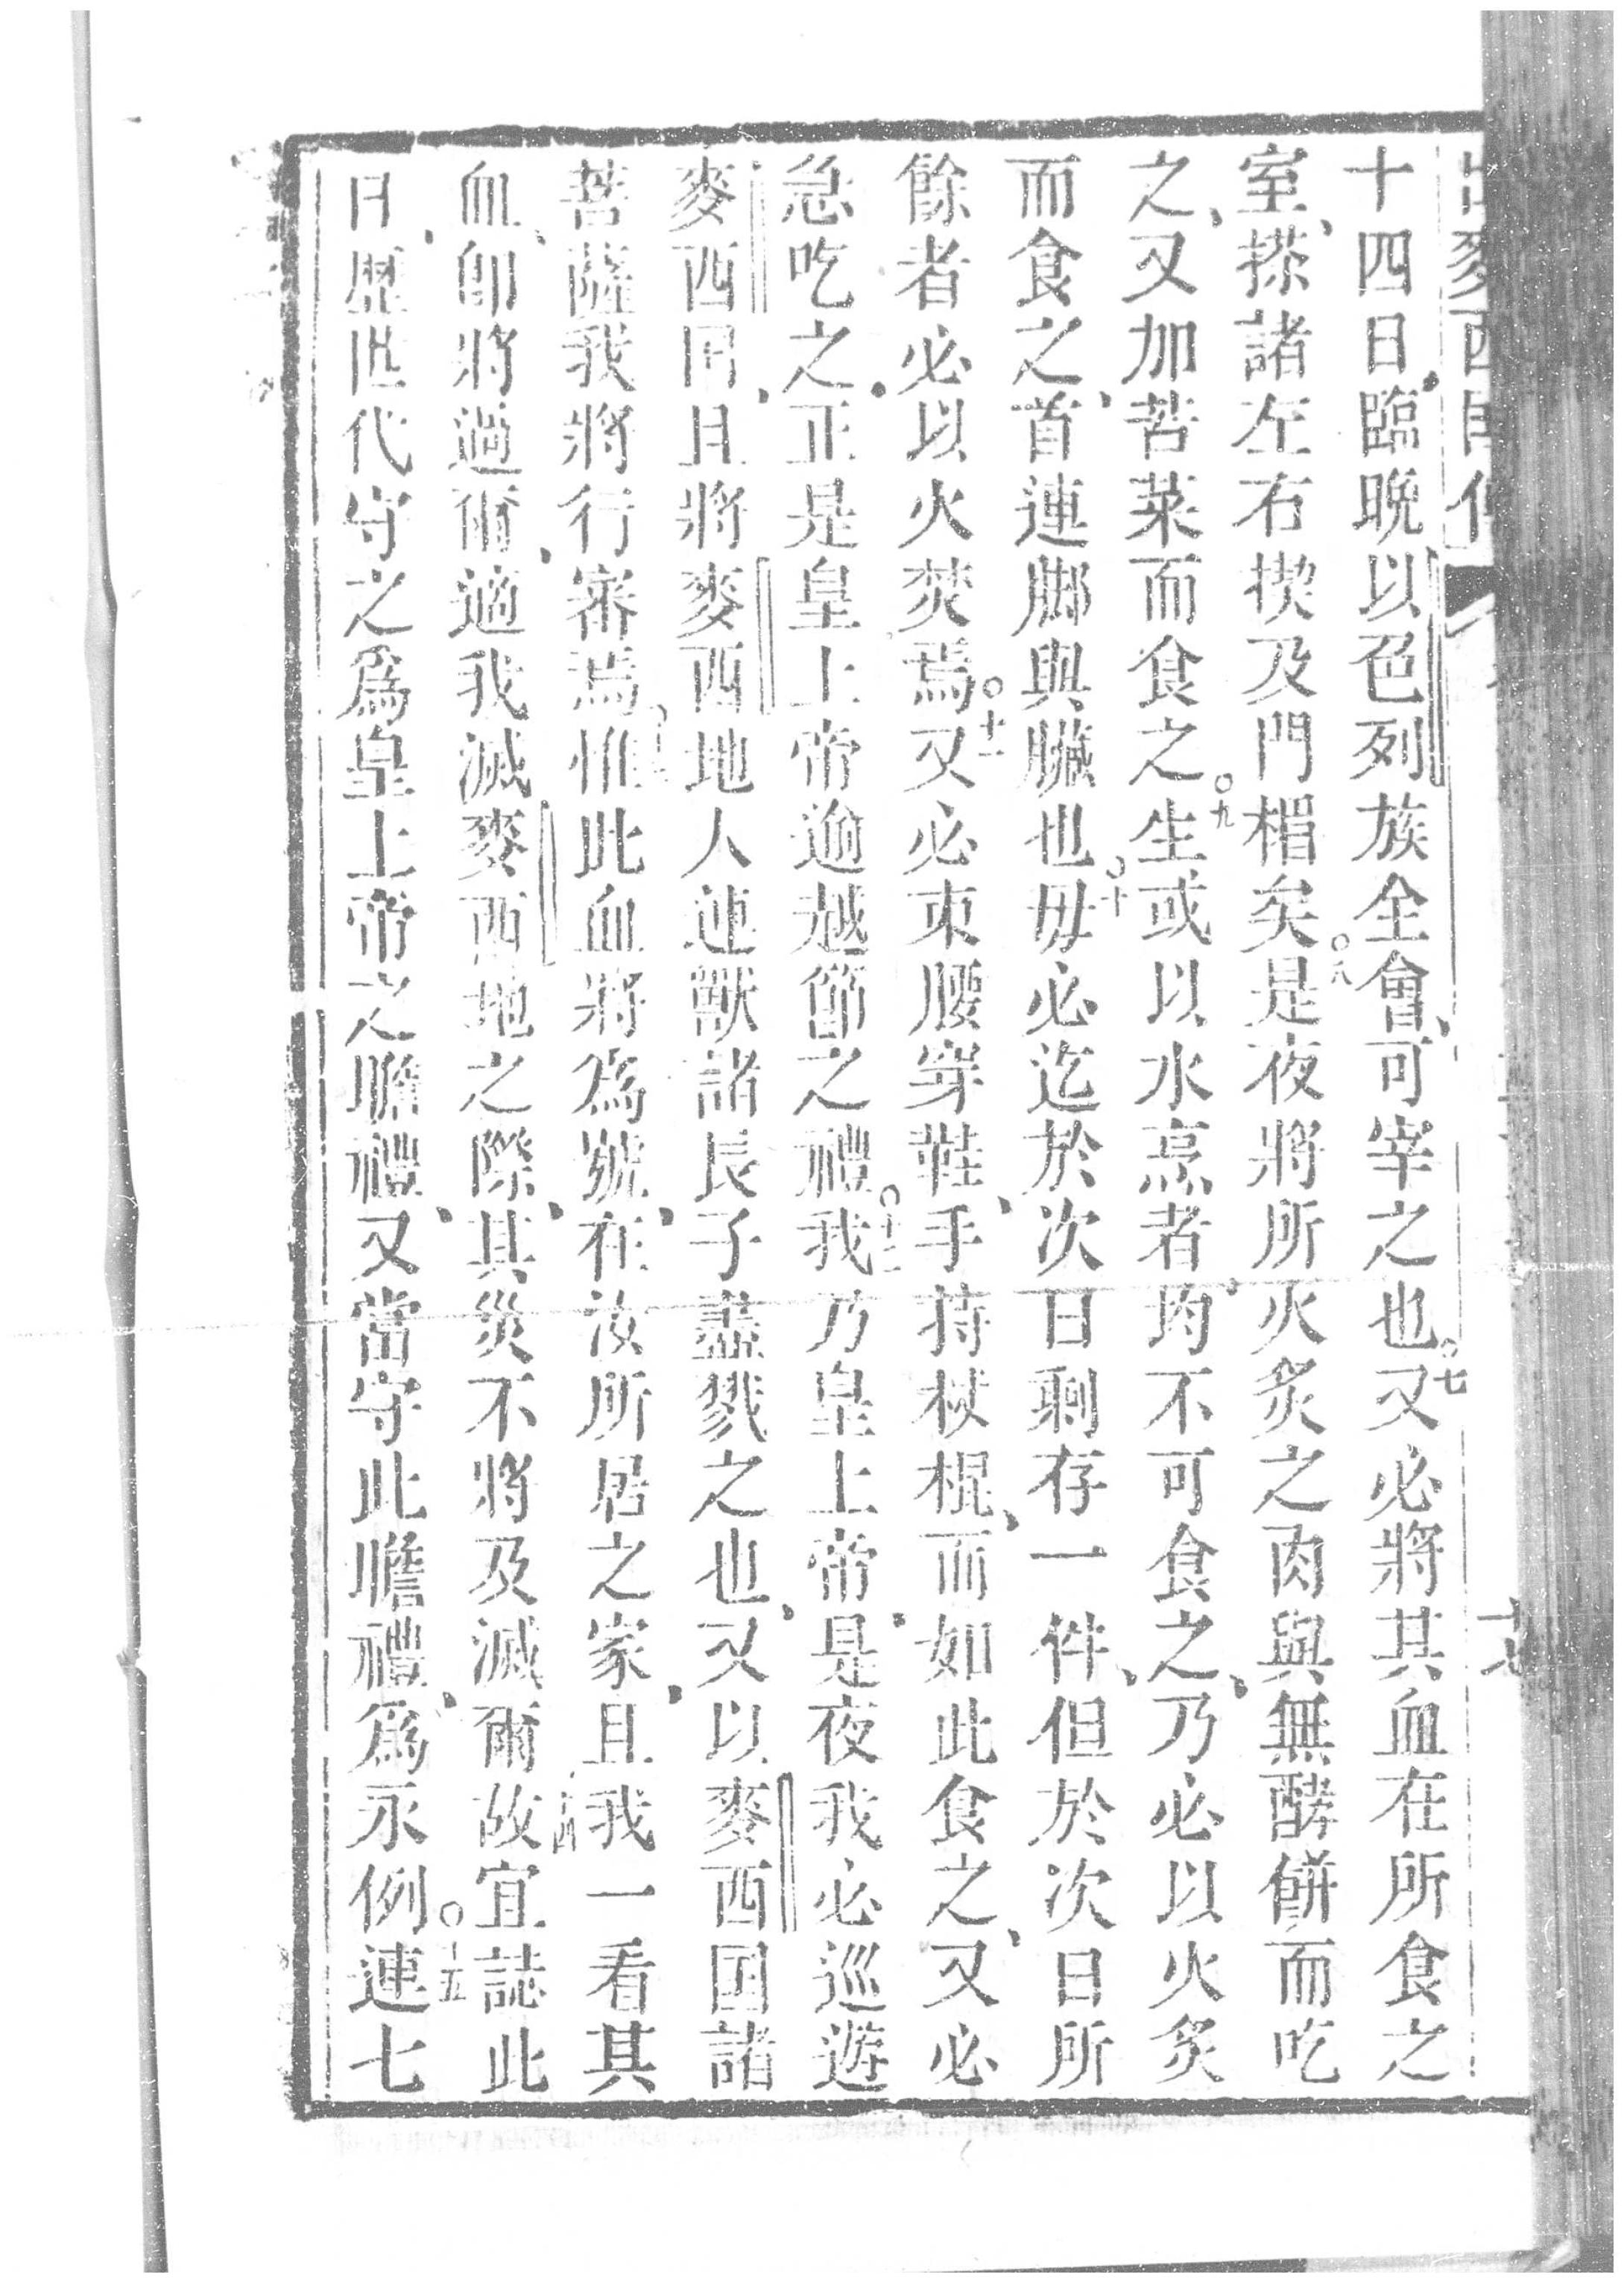 出麥西國傳
十四日臨晚以色列族全會、可宰之也。七又必將其血在所食之
室、搽諸左右楔及門楣矣。八是夜將所火炙之肉與無酵餅而吃
之、又加苦菜而食之。九生或以水烹者、均不可食之、乃必以火炙
而食之、首連脚與臟也。十毋必迄於次日剩存一件、但於次日所
餘者必以火焚焉。十一又必束腰穿鞋、手持杖棍、而如此食之、又必
急吃之、正是皇上帝逾越節之禮。十二我乃皇上帝、是夜我必巡遊
麥西國、且將麥西地人連獸諸長子盡戮之也、又以麥西国諸
菩薩我將行審焉。十三惟此血將爲號、在汝所居之家、且我一看其
血、卽將過爾、適我滅麥西地之際、其災不將及滅爾。十四故宜誌此
日、歷世代守之爲皇上帝之瞻禮、又當守此瞻禮、爲永例。十五連七